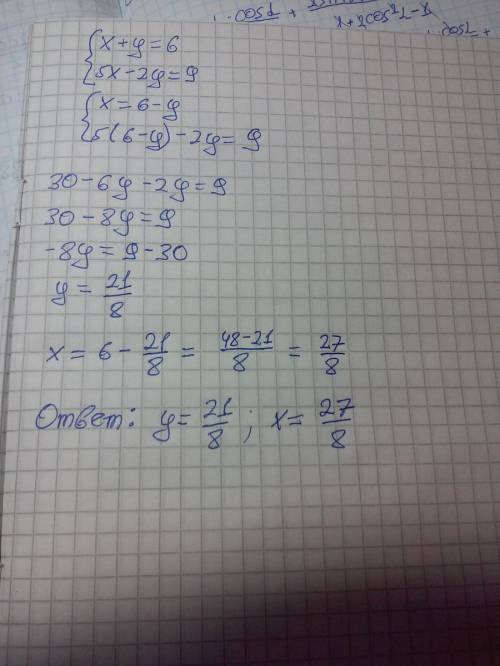 cosα +
x+2cos²2-x
cos2 +
{x+y=6
{5x-2y=9
{x=6-y
{5(6-y)-2y=9
30-6y-2y=9
30-8y=9
-8y=9-30
y= 21/8
x=6- 21/8 = 48-21/8 = 27/8
Ответ: y= 21/8 ; x= 27/8